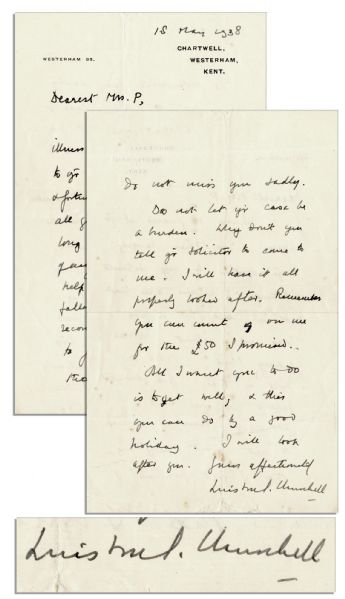 18 May 1938
CHARTWELL,
WESTERHAM,
KENT.
WESTERHAM 93.
Dearest Mrs. P,
illness
to yr
all
long
help
to
do not miss you sadly.
Do not let yr case be
a burden. Why don't you
tell yr solicitor to come to
me. I will have it all
properly looked after. Remember
you can count on me
for the £50 I promised.
All I want you to do
is to get well, & this
you can do by a good
holiday. I will look
after you. Yours affectionately
Winston S. Churchill
Winston S. Churchill